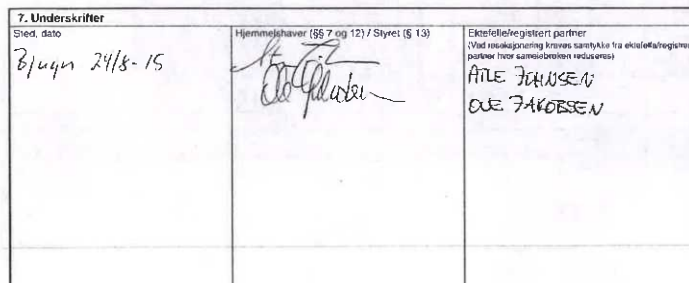 7. Underskrifter
Sted, dato
Bjugn 24/8-15
Hjemmelshaver (§§ 7 og 12) / Styret (§ 13)
Ektefelle/registrert partner
(Ved reseksjonering kreves samtykke fra ektefelle/registrert
partner hvor sameiebroken reduseres)
ATLE JOHNSEN
OLE JAKOBSEN